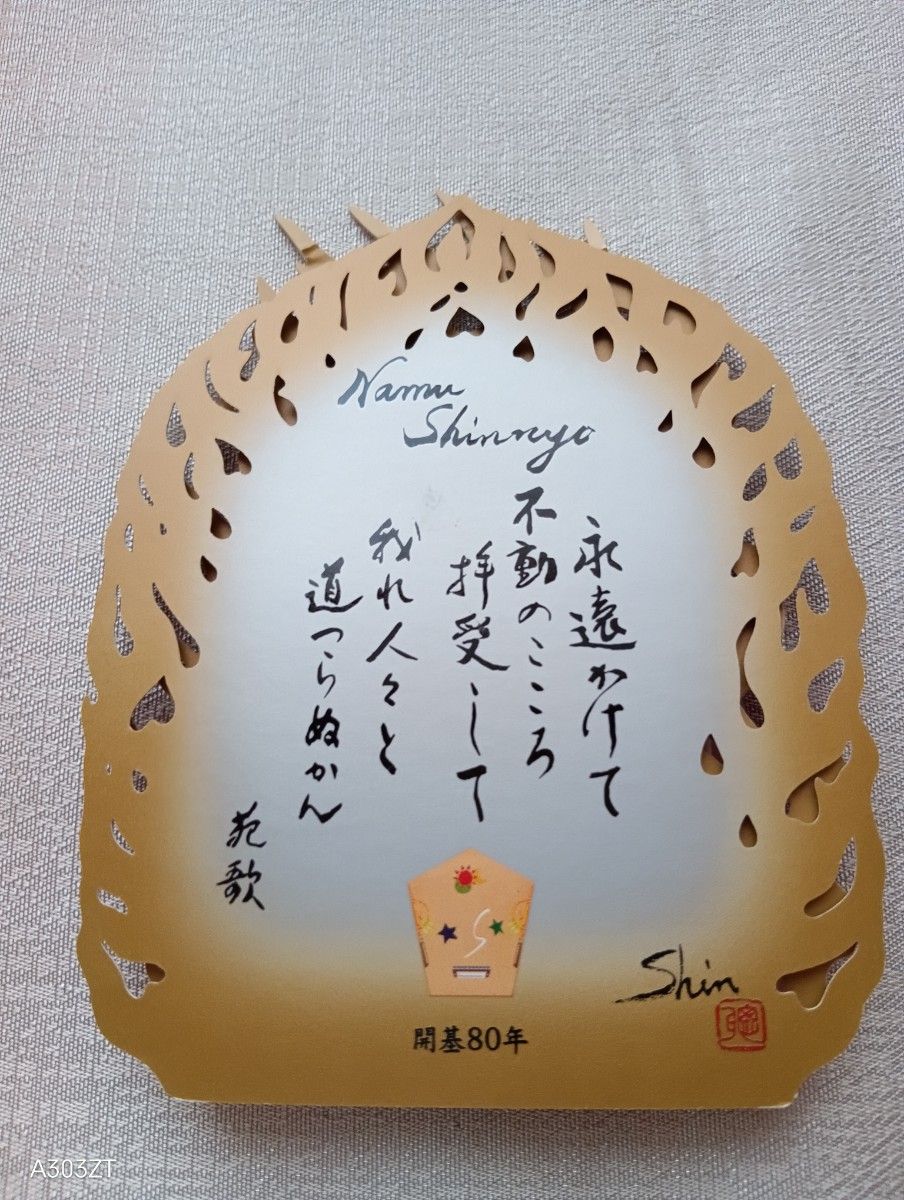 Namu
Shinnyo
永遠かけて
不動のこころ
拝受して
我れ人々と
道つらぬかん
苑歌
開基80年
Shin
A303ZT